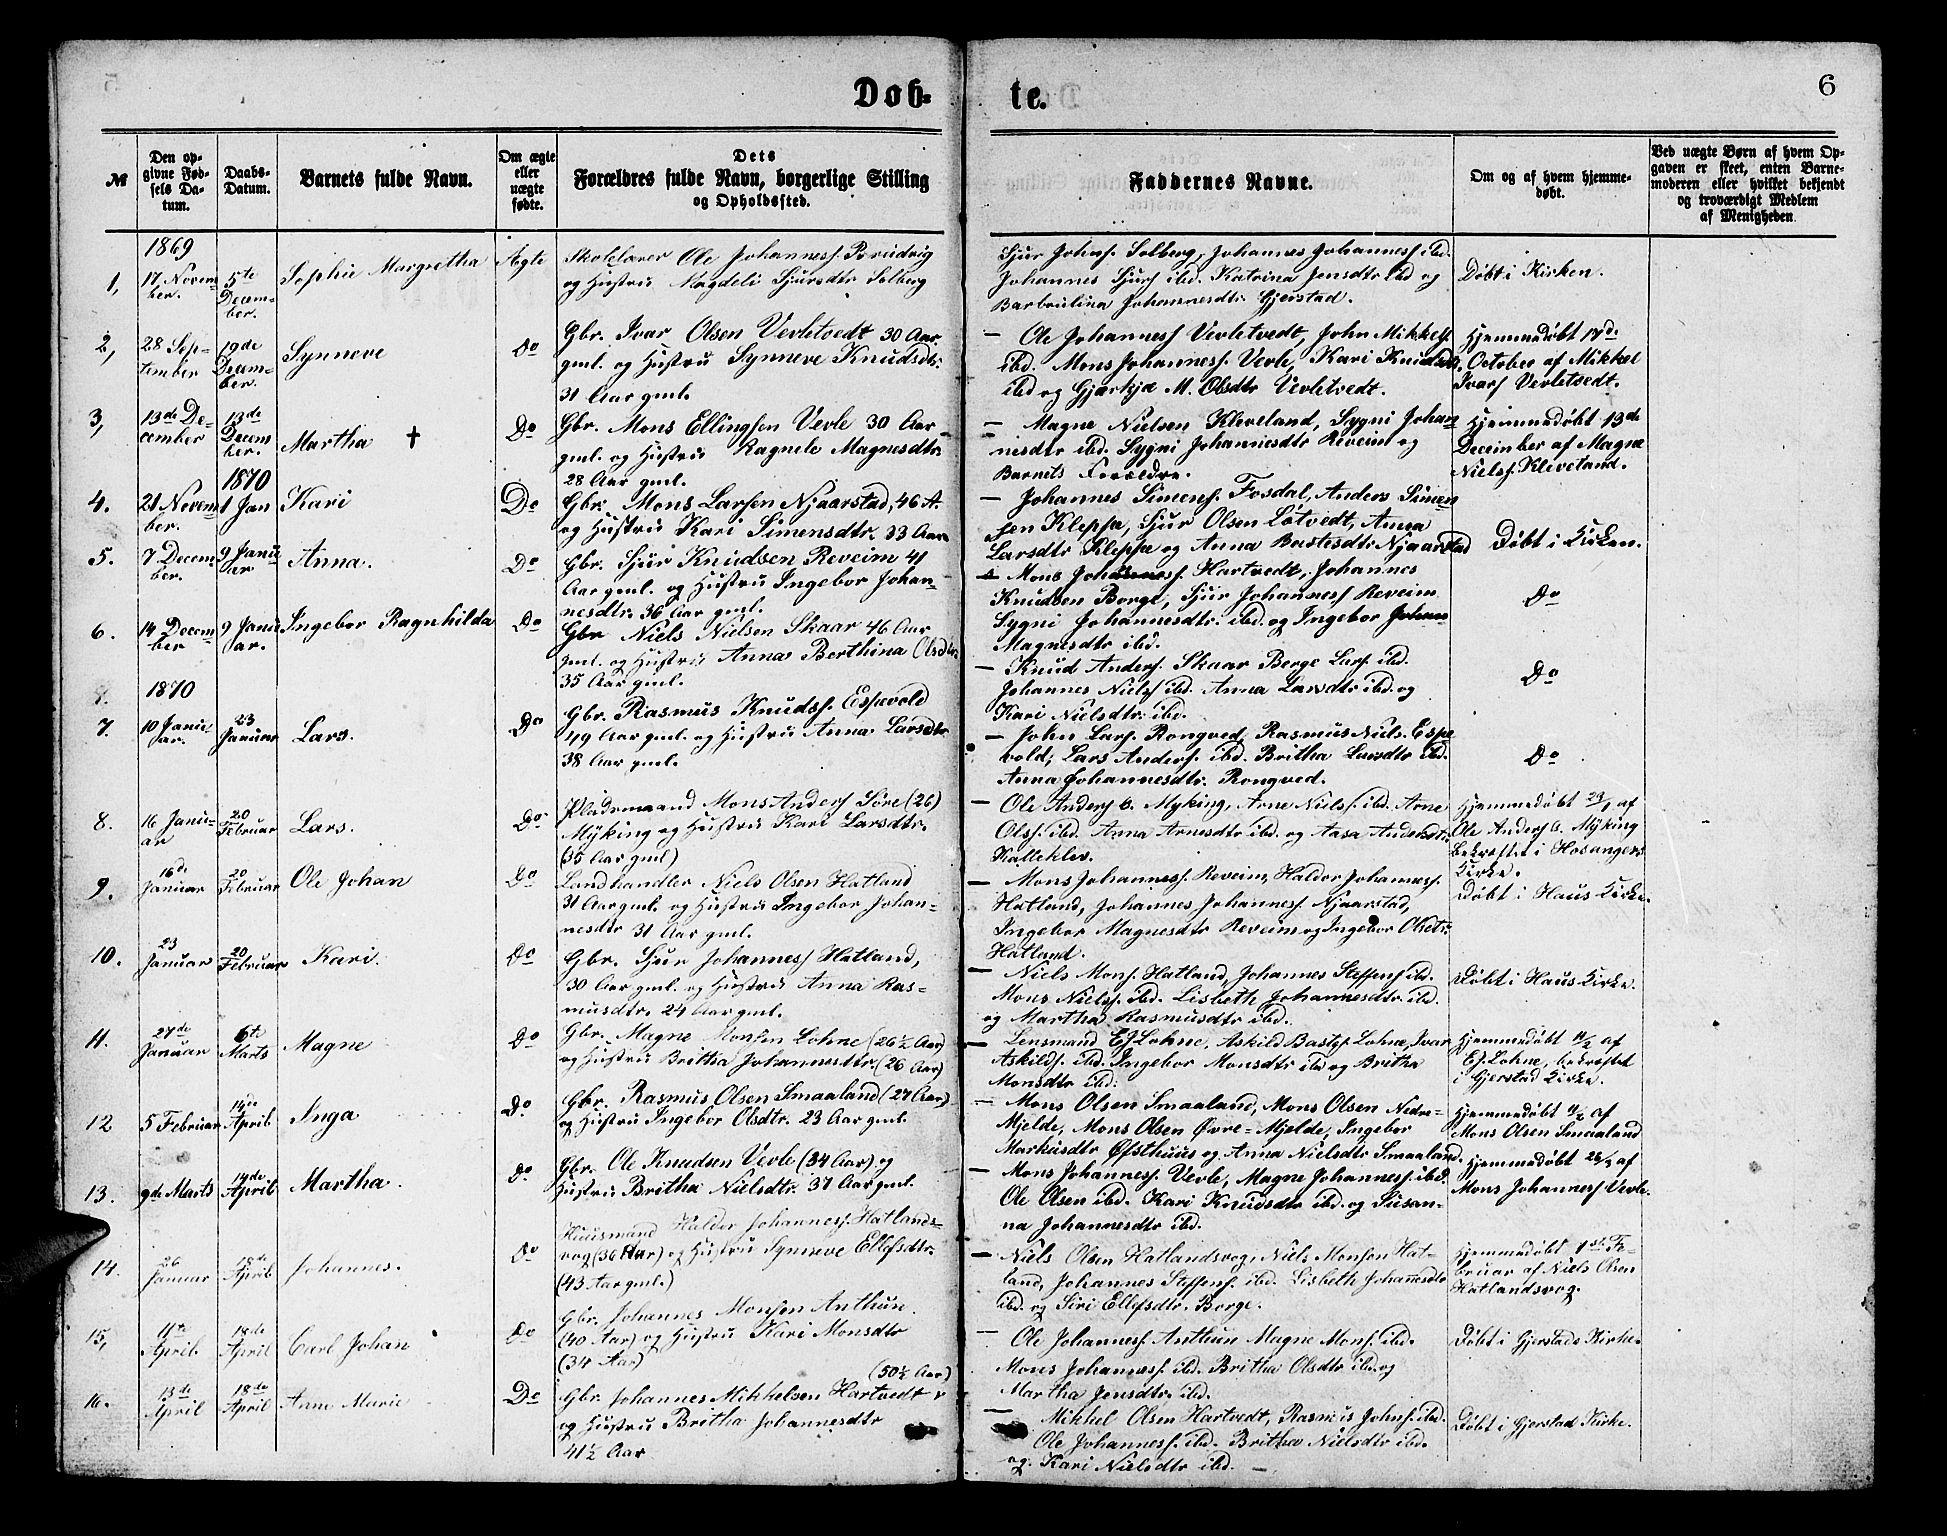 Døb- te.
6
№
Den op-
givne Fød-
sels Da-
tum.
Daabs-
Datum.
Barnets fulde Navn.
Om ægte
eller
uægte
fødte.
Dets
Forældres fulde Navn, borgerlige Stilling
og Opholdssted.
Faddernes Navne.
Om og af hvem hjemme-
døbt.
Ved uægte Børn af hvem Op-
gaven er skeet, enten Barne-
moderen eller hvilket bekjendt
og troværdigt Medlem
af Menigheden.
1869
1,
17 Novem-
ber.
5te
Decem-
ber.
Sophie Margretha
Ægte
Skolelærer Ole Johanness. Brudvig
og Hustru Magdeli Sjursdtr Solberg
Sjur Johns. Solberg, Johannes Johanness ibd.
Johannes Sjurs ibd. Katrina Jensdtr ibd og
Barbrulina Johannesdtr. Gjerstad.
Døbt i Kirken.
2,
28 Sep-
tember
19de
Decem-
ber.
Synneve
Do
Gbr. Ivar Olsen Vevletvedt 30 Aar
gml. og Hustru Synneve Knudsdtr.
31 Aar gml.
— Ole Johanness Vevletvedt, John Mikkels.
ibd. Mons Johanness. Vevle, Kari Knudsdtr
ibd og Gjertje M. Olsdtr Vevletvedt.
Hjemmedøbt 17de
October af Mikkel
Ivars Vevletvedt.
3,
13de De-
cember
13de
Decem
ber.
Martha †
Do
Gbr. Mons Ellingsen Vevle 30 Aar
gml. og Hustru Ragnele Magnesdtr.
28 Aar gml.
— Magne Nielsen Kleveland, Sygni Johan
nesdtr ibd. Sygni Johannesdtr Reveim og
Barnets Forældre.
Hjemmedøbt 13de
December af Magne
Niels. Kleveland.
1870
4.
21 Novem-
ber.
1 Jan
Kari
Do
Gbr. Mons Larsen Njaarstad, 46 A.
og Hustru Kari Simensdtr. 33 Aar
— Johannes Simens. Fosdal, Anders Simen
sen Kleppe, Sjur Olsen Løtvedt, Anna
Larsdtr Kleppe og Anna Bastesdtr Njaarstad
Døbt i Kirken.
5.
7 Decem-
ber.
9 Janu
ar
Anna.
Do
Gbr. Sjur Knudsen Reveim 41
Aar gml. og Hustru Ingebor Johan-
nesdtr. 36 Aar gml.
— Mons Johanness. Hartvedt, Johannes
Knudsen Borge, Sjur Johanness Reveim
Sygni Johannesdtr. ibd. og Ingebor Johan
Magnesdtr ibd.
Do
6.
14 Decem-
ber
9 Janu
ar.
Ingebor Ragnhilda
Do
Gbr Niels Nielsen Skaar 46 Aar
gml. og Hustru Anna Berthina Olsdtr.
35 Aar gml.
— Knud Anders. Skaar Borge Lars. ibd.
Johannes Niels ibd. Anna Larsdtr ibd. og
Kari Nielsdtr. ibd.
Do
1870
7.
10 Janu-
ar.
23
Januar
Lars.
Do
Gbr. Rasmus Knudss. Espevold
49 Aar gml. og Hustru Anna Larsdtr
38 Aar gml.
— John Lars. Rongved, Rasmus Niels. Espe
vold; Lars Anders. ibd. Britha Larsdtr ibd.
Anna Johannesdtr. Rongved.
Do
8.
16 Janu-
ar
20
Februar
Lars.
Do
Pladsmand Mons Anders Søre (26)
Myking og Hustru Kari Larsdtr.
(35 Aar gml)
— Ole Anders B. Myking, Arne Niels. ibd. Arne
Ols. ibd. Anna Arnesdtr ibd. og Aasa Andersdtr.
Kalleklev.
Hjemmedøbt 23/1 af
Ole Anders B. Myking
bekræftet i Hosangers
Kirke.
9.
16de
Januar
20
Februar
Ole Johan
Do
Landhandler Niels Olsen Hatland
31 Aar gml. og Hustru Ingebor Johan-
nesdtr 31 Aar gml.
— Mons Johanness. Reveim, Haldor Johanness.
Hatland, Johannes Johanness Njaarstad,
Ingebor Magnesdtr Reveim og Ingebor Olsdtr.
Hatland.
Døbt i Haus Kirke.
10.
23
Januar
20
Februar
Kari
Do
Gbr. Sjur Johanness Hatland,
30 Aar gml. og Hustru Anna Ras-
musdtr. 24 Aar gml.
— Niels Mons. Hatland, Johannes Steffens ibd.
Mons Niels. ibd. Lisbeth Johannesdtr ibd.
og Martha Rasmusdtr ibd.
Døbt i Haus Kirke.
11.
27de
Januar
6te
Marts
Magne
Do
Gbr. Magne Monsen Lohne (26½ Aar)
og Hustru Britha Johannesdtr. (26 Aar)
— Lensmand Es. Lohne, Askild Bastes Lohne, Ivar
Askilds. ibd. Ingebor Monsdtr ibd og Britha
Monsdtr ibd.
Hjemmedøbt 11/2 af
Es. Lohne, bekræftet
i Gjerstad Kirke.
12
5 Februar
14de
April
Inga
Do
Gbr. Rasmus Olsen Smaaland (27 Aar)
og Hustru Ingebor Olsdtr. 23 Aar gml.
— Mons Olsen Smaaland, Mons Olsen Nedre-
Mjelde, Mons Olsen Øvre-Mjelde, Ingebor
Markusdtr Øfsthuus og Anna Nielsdtr Smaaland.
Hjemmedøbt 11/2 af
Mons Olsen Smaaland
13.
9de Marts
14de
April
Martha.
Do
Gbr. Ole Knudsen Vevle (34 Aar) og
Hustru Britha Nielsdtr. 37 Aar gml.
— Mons Johanness. Vevle, Magne Johanness. ibd.
Ole Olsen ibd. Kari Knudsdtr ibd. og Susan-
na Johannesdtr ibd.
Hjemmedøbt 28/3 af
Mons Johanness Vevle.
14.
26
Januar
18de
April
Johannes.
Do
Huusmand Haldor Johanness. Hatlands-
vog (36 Aar) og Hustru Synneve Ellefsdtr.
(43 Aar gml.)
— Niels Olsen Hatlandsvog, Niels Monsen Hat-
land, Johannes Steffens. ibd. Lisbeth Johannesdtr
ibd. og Siri Ellefsdtr. Borge.
Hjemmedøbt 1st Fe-
bruar af Niels Olsen
Hatlandsvog.
15,
11te
April
18de
April
Carl Johan
Do
Gbr. Johannes Monsen Anthun.
(40 Aar) og Hustru Kari Monsdtr
(34 Aar)
— Ole Johanness. Anthun Magne Mons. ibd.
Mons Johanness. ibd. Britha Olsdtr ibd. og
Martha Jensdtr. ibd.
Døbt i Gjerstads Kirke.
16.
13de
April
18de
April
Anne Marie
Do
(50½ Aar)
Gbr. Johannes Mikkelsen Hartvedt
og Hustru Britha Johannesdtr
41½ Aar
— Mikkel Olsen Hartvedt, Rasmus Johns. ibd.
Ole Johanness. ibd. Britha Nielsdtr ibd.
og Kari Nielsdtr ibd. —
Døbt i Gjerstad Kirke.